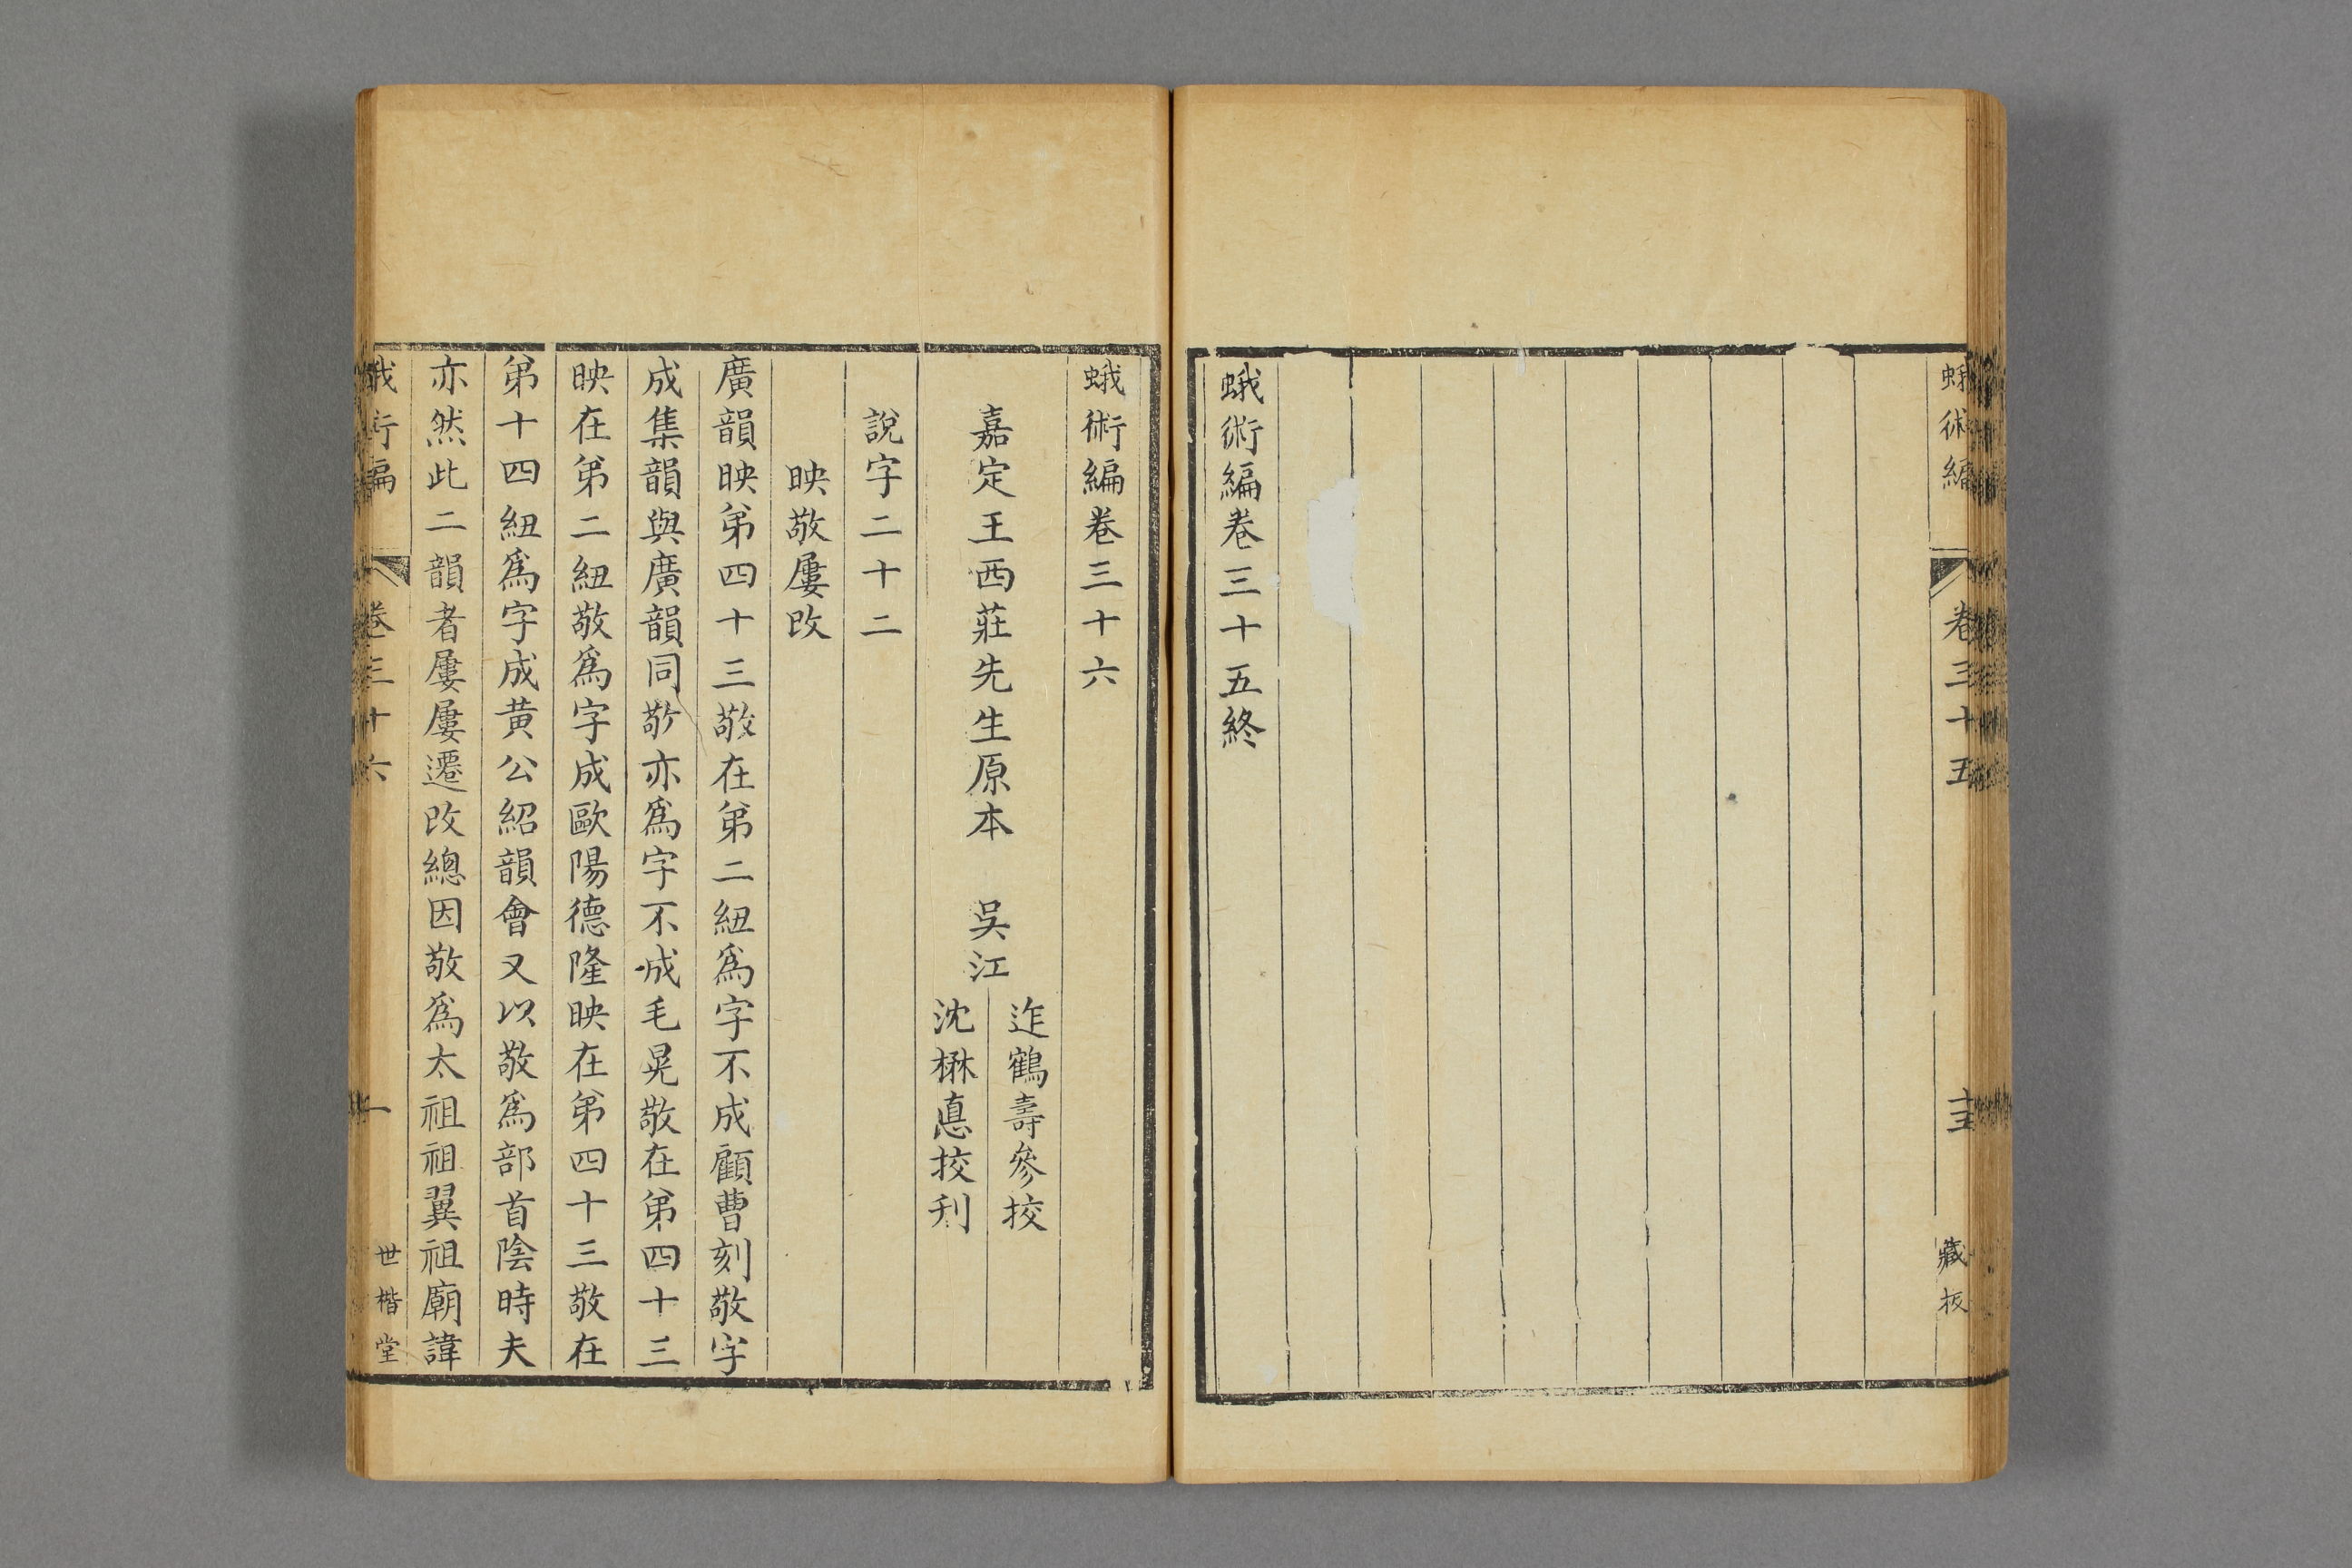 蛾術編
卷三十五
十五
藏板
蛾術編卷三十五終
蛾術編卷三十六
嘉定王西莊先生原本 吳江
迮鶴壽參挍
沈楙悳挍刊
說字二十二
映敬屢改
廣韻映第四十三敬在第二紐爲字不成顧曹刻敬字
成集韻與廣韻同敬亦爲字不成毛晃敬在第四十三
映在第二紐敬爲字成歐陽德隆映在第四十三敬在
第十四紐爲字成黄公紹韻會又以敬爲部首陰時夫
亦然此二韻者屢屢遷改總因敬爲太祖祖翼祖廟諱
蛾術編
卷三十六
一
世楷堂